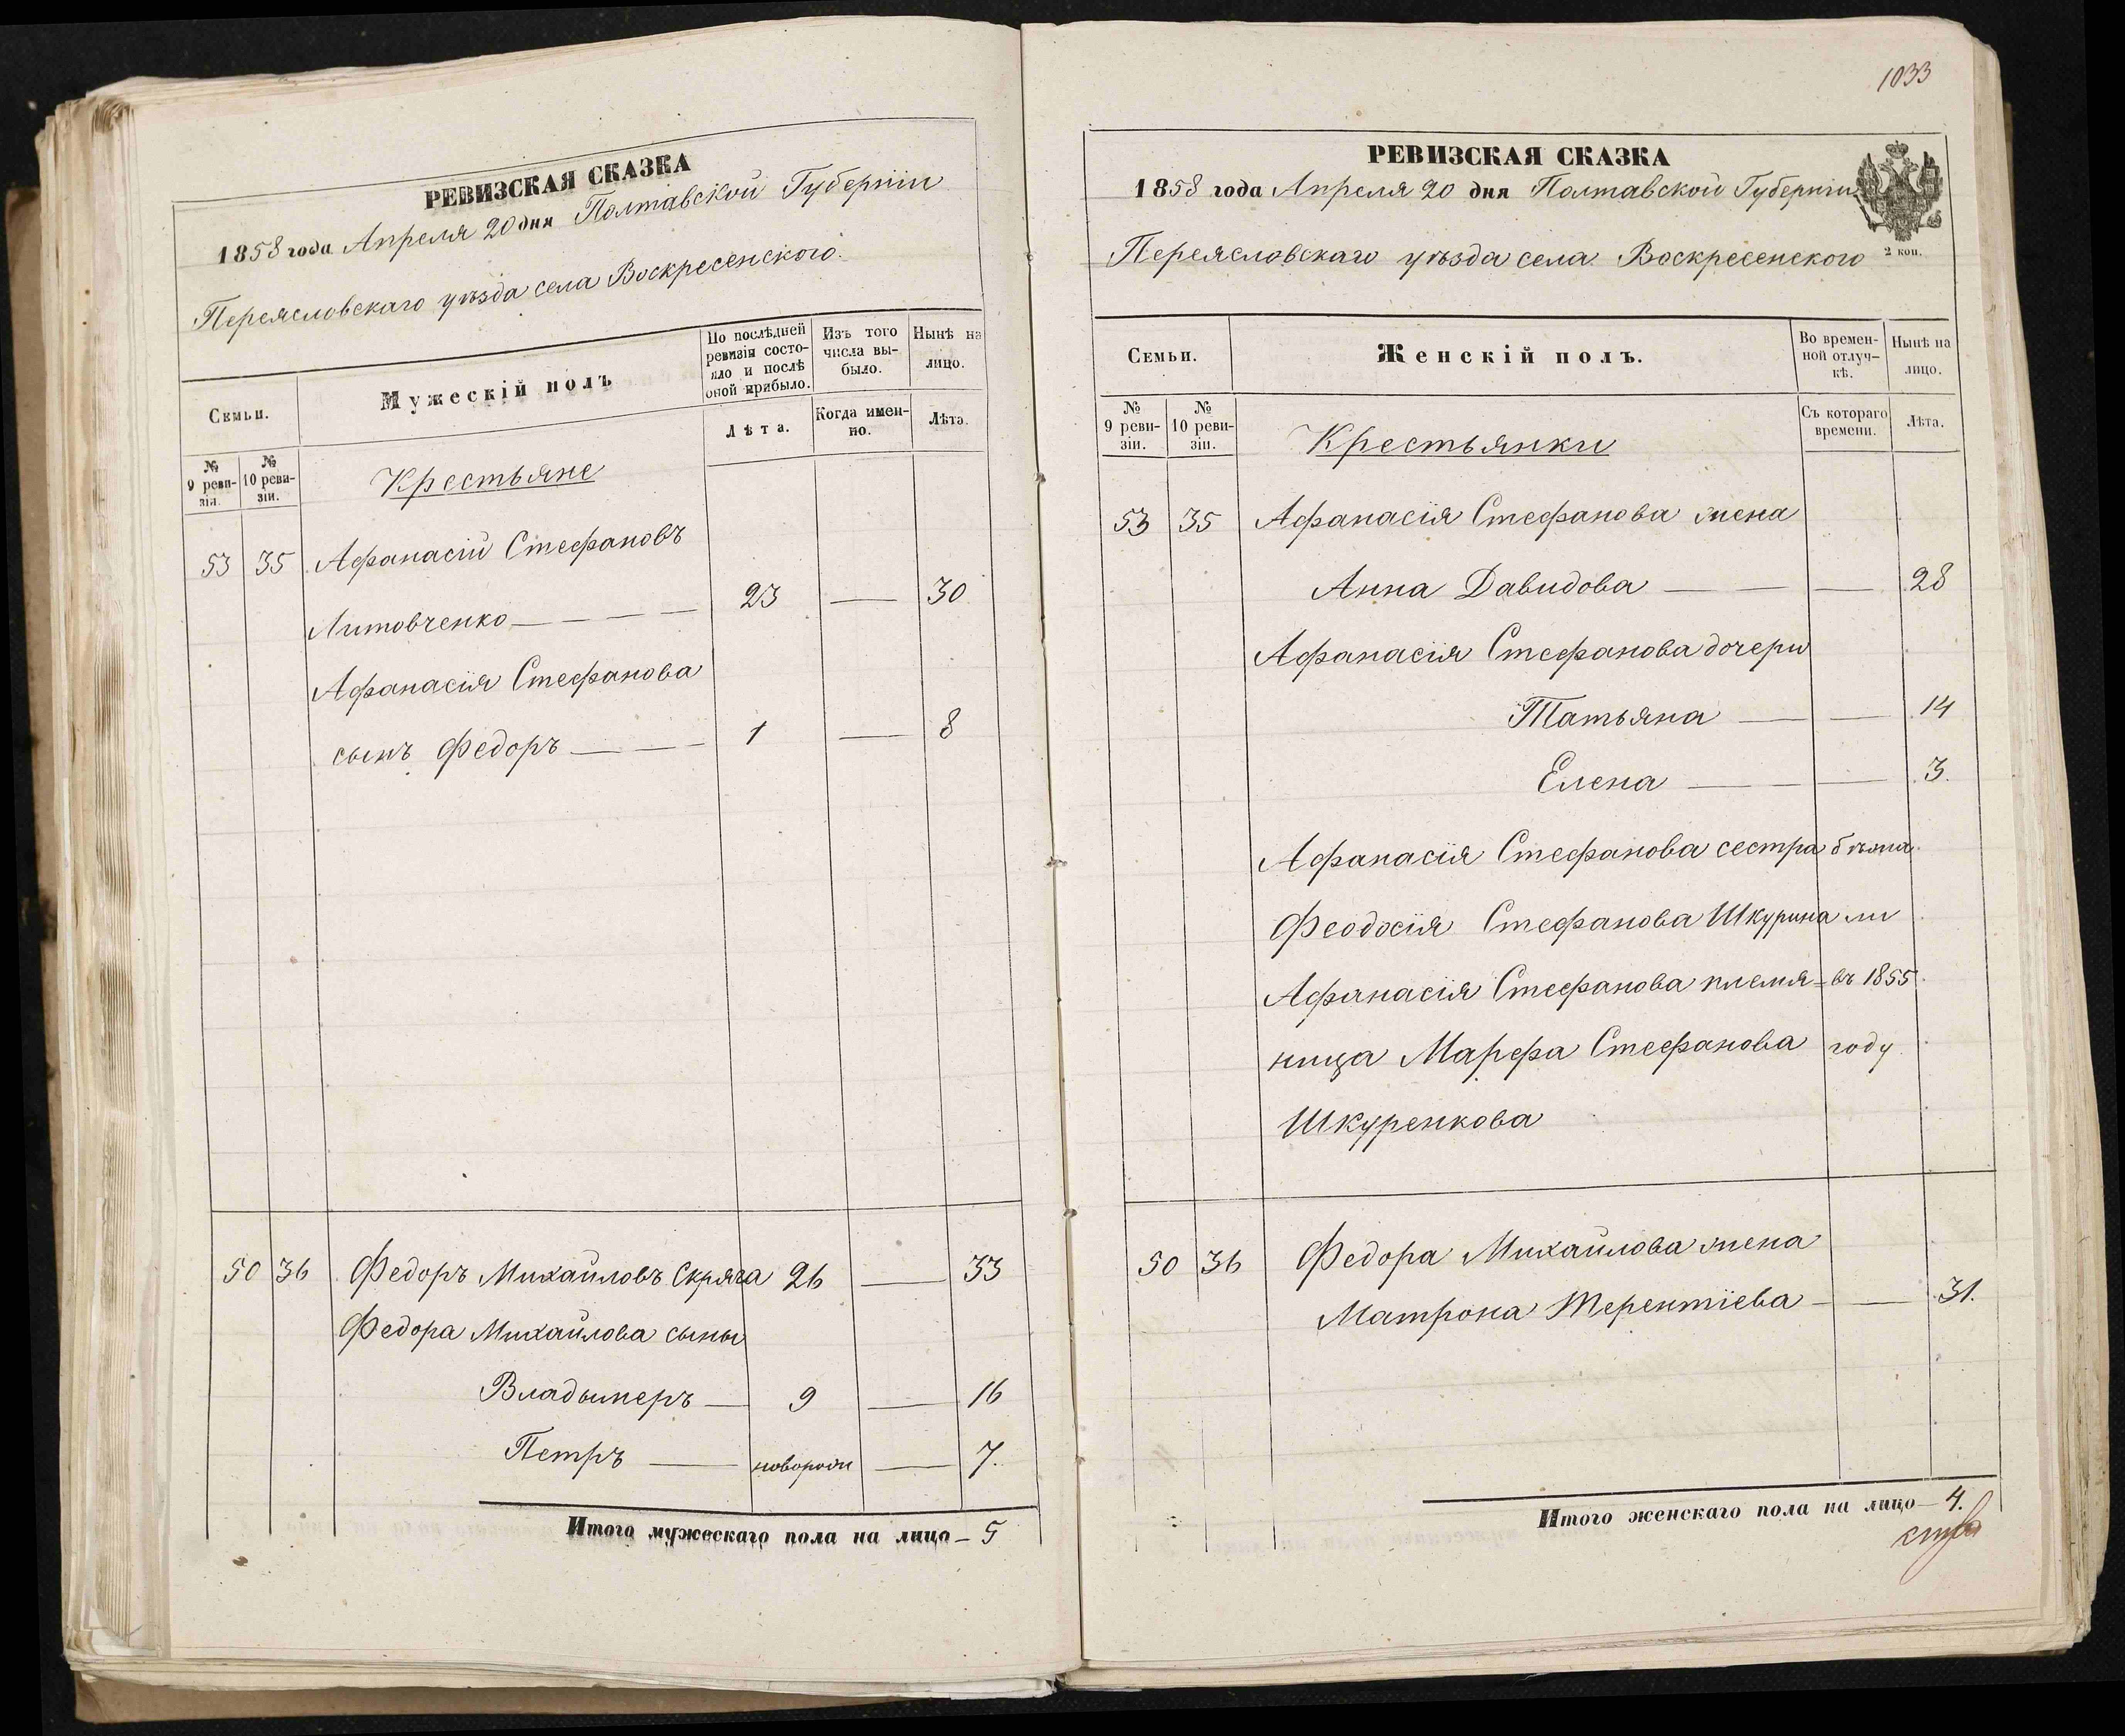 РЕВИЗСКАЯ СКАЗКА
1858 года Апреля 20 дня Полтавской Губерніи
Переясловскаго уѣзда села Воскресенского.
Семьи.
Мужескій полъ
По послѣдней ревизіи состояло и послѣ оной прибыло.
Изъ того числа выбыло.
Нынѣ на лицо.
№ 9 ревизіи.
№ 10 ревизіи.
Лѣта.
Когда именно.
Лѣта.
Крестьяне
53 35 Афанасій Стефановъ
Литовченко — — — — 23 — 30
Афанасія Стефанова
сынъ Федоръ — — — 1 — 8
50 36 Федоръ Михайловъ Скряга 26 — 33
Федора Михайлова сыны
Владымеръ — 9 — 16
Петръ — новорож — 7.
Итого мужескаго пола на лицо — 5
1033
РЕВИЗСКАЯ СКАЗКА
1858 года Апреля 20 дня Полтавской Губерніи
Переясловскаго уѣзда села Воскресенского
2 коп.
Семьи.
Женскій полъ.
Во временной отлучкѣ.
Нынѣ на лицо.
№ 9 ревизіи.
№ 10 ревизіи.
Съ котораго времени.
Лѣта.
Крестьянки
53 35 Афанасія Стефанова жена
Анна Давидова — — — 28
Афанасія Стефанова дочери
Татьяна — — 14
Елена — — — 3.
Афанасія Стефанова сестра бѣжа
Феодосія Стефанова Шкурина ли
Афанасія Стефанова племя= въ 1855
ница Марфа Стефанова году.
Шкуренкова
50 36 Федора Михайлова жена
Матрона Терентіева — — 31.
Итого женскаго пола на лицо — 4.